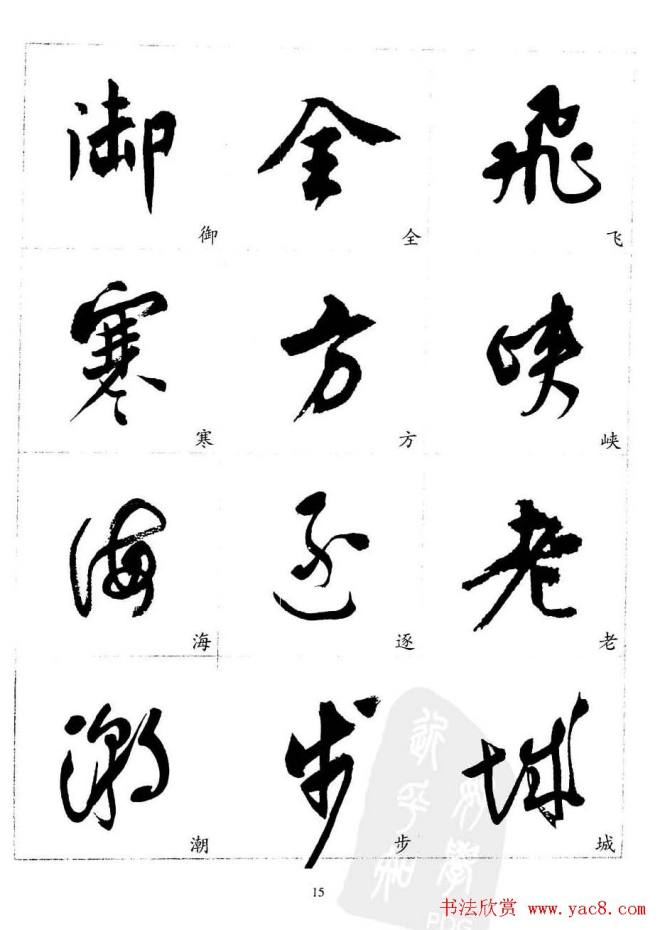 御 全 飞
御 全 飞
寒 方 峡
寒 方 峡
海 逐 老
海 逐 老
潮 步 城
潮 步 城
15
书法欣赏 www.yac8.com
PDG